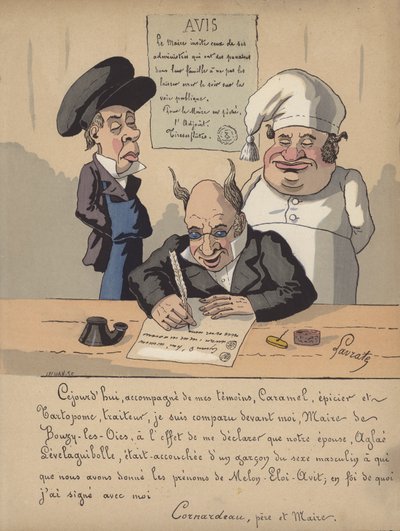 AVIS
Le Maire invite ceux de ses
administrés qui ont des
dans leur famille à ne pas les
laisser errer le soir sur la
voie publique.
Pour le Maire en
l'Adjoint.
Lavrate
Cejourd'hui, accompagné de mes témoins, Caramel, épicier et
Tartopome, traiteur, je suis comparu devant moi, Maire de
Bouzy-les-Oies, à l'effet de me déclarer que notre épouse, Aglaé
Lévelaguibolle, était accouchée d'un garçon du sexe masculin à qui
que nous avons donné les prénoms de Melon-Eloi-Avit; en foi de quoi
j'ai signé avec moi
Cornardeau, père et Maire.